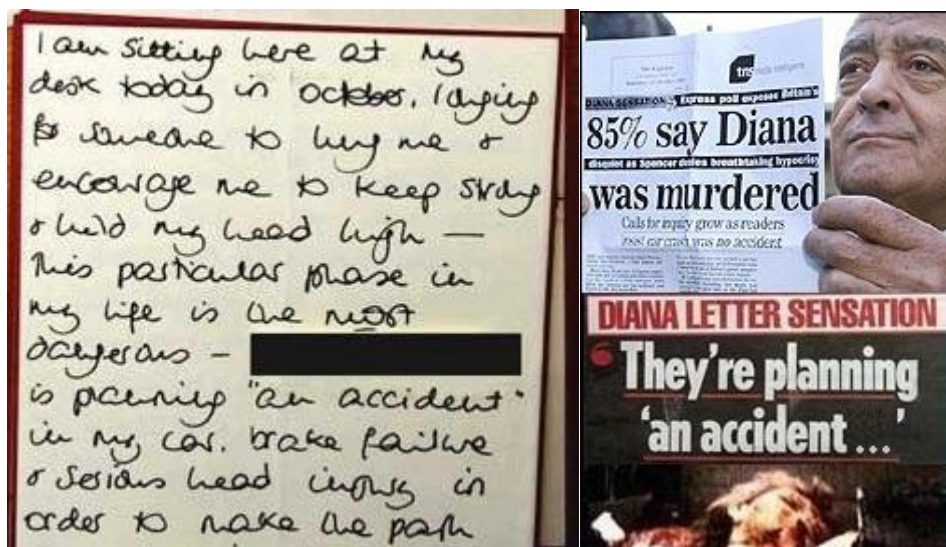 I am sitting here at my
desk today in october, longing
for someone to hug me &
encourage me to keep strong
& hold my head high —
This particular phase in
my life is the most
dangerous –
is planning "an accident"
in my car. brake failure
& serious head injury in
order to make the path
tns
DIANA SENSATION Express poll exposes Britain's
85% say Diana
disquiet as Spencer defies breathtaking hypocrisy
was murdered
Calls for inquiry grow as readers
car crash was no accident
DIANA LETTER SENSATION
‘They're planning
'an accident ...'